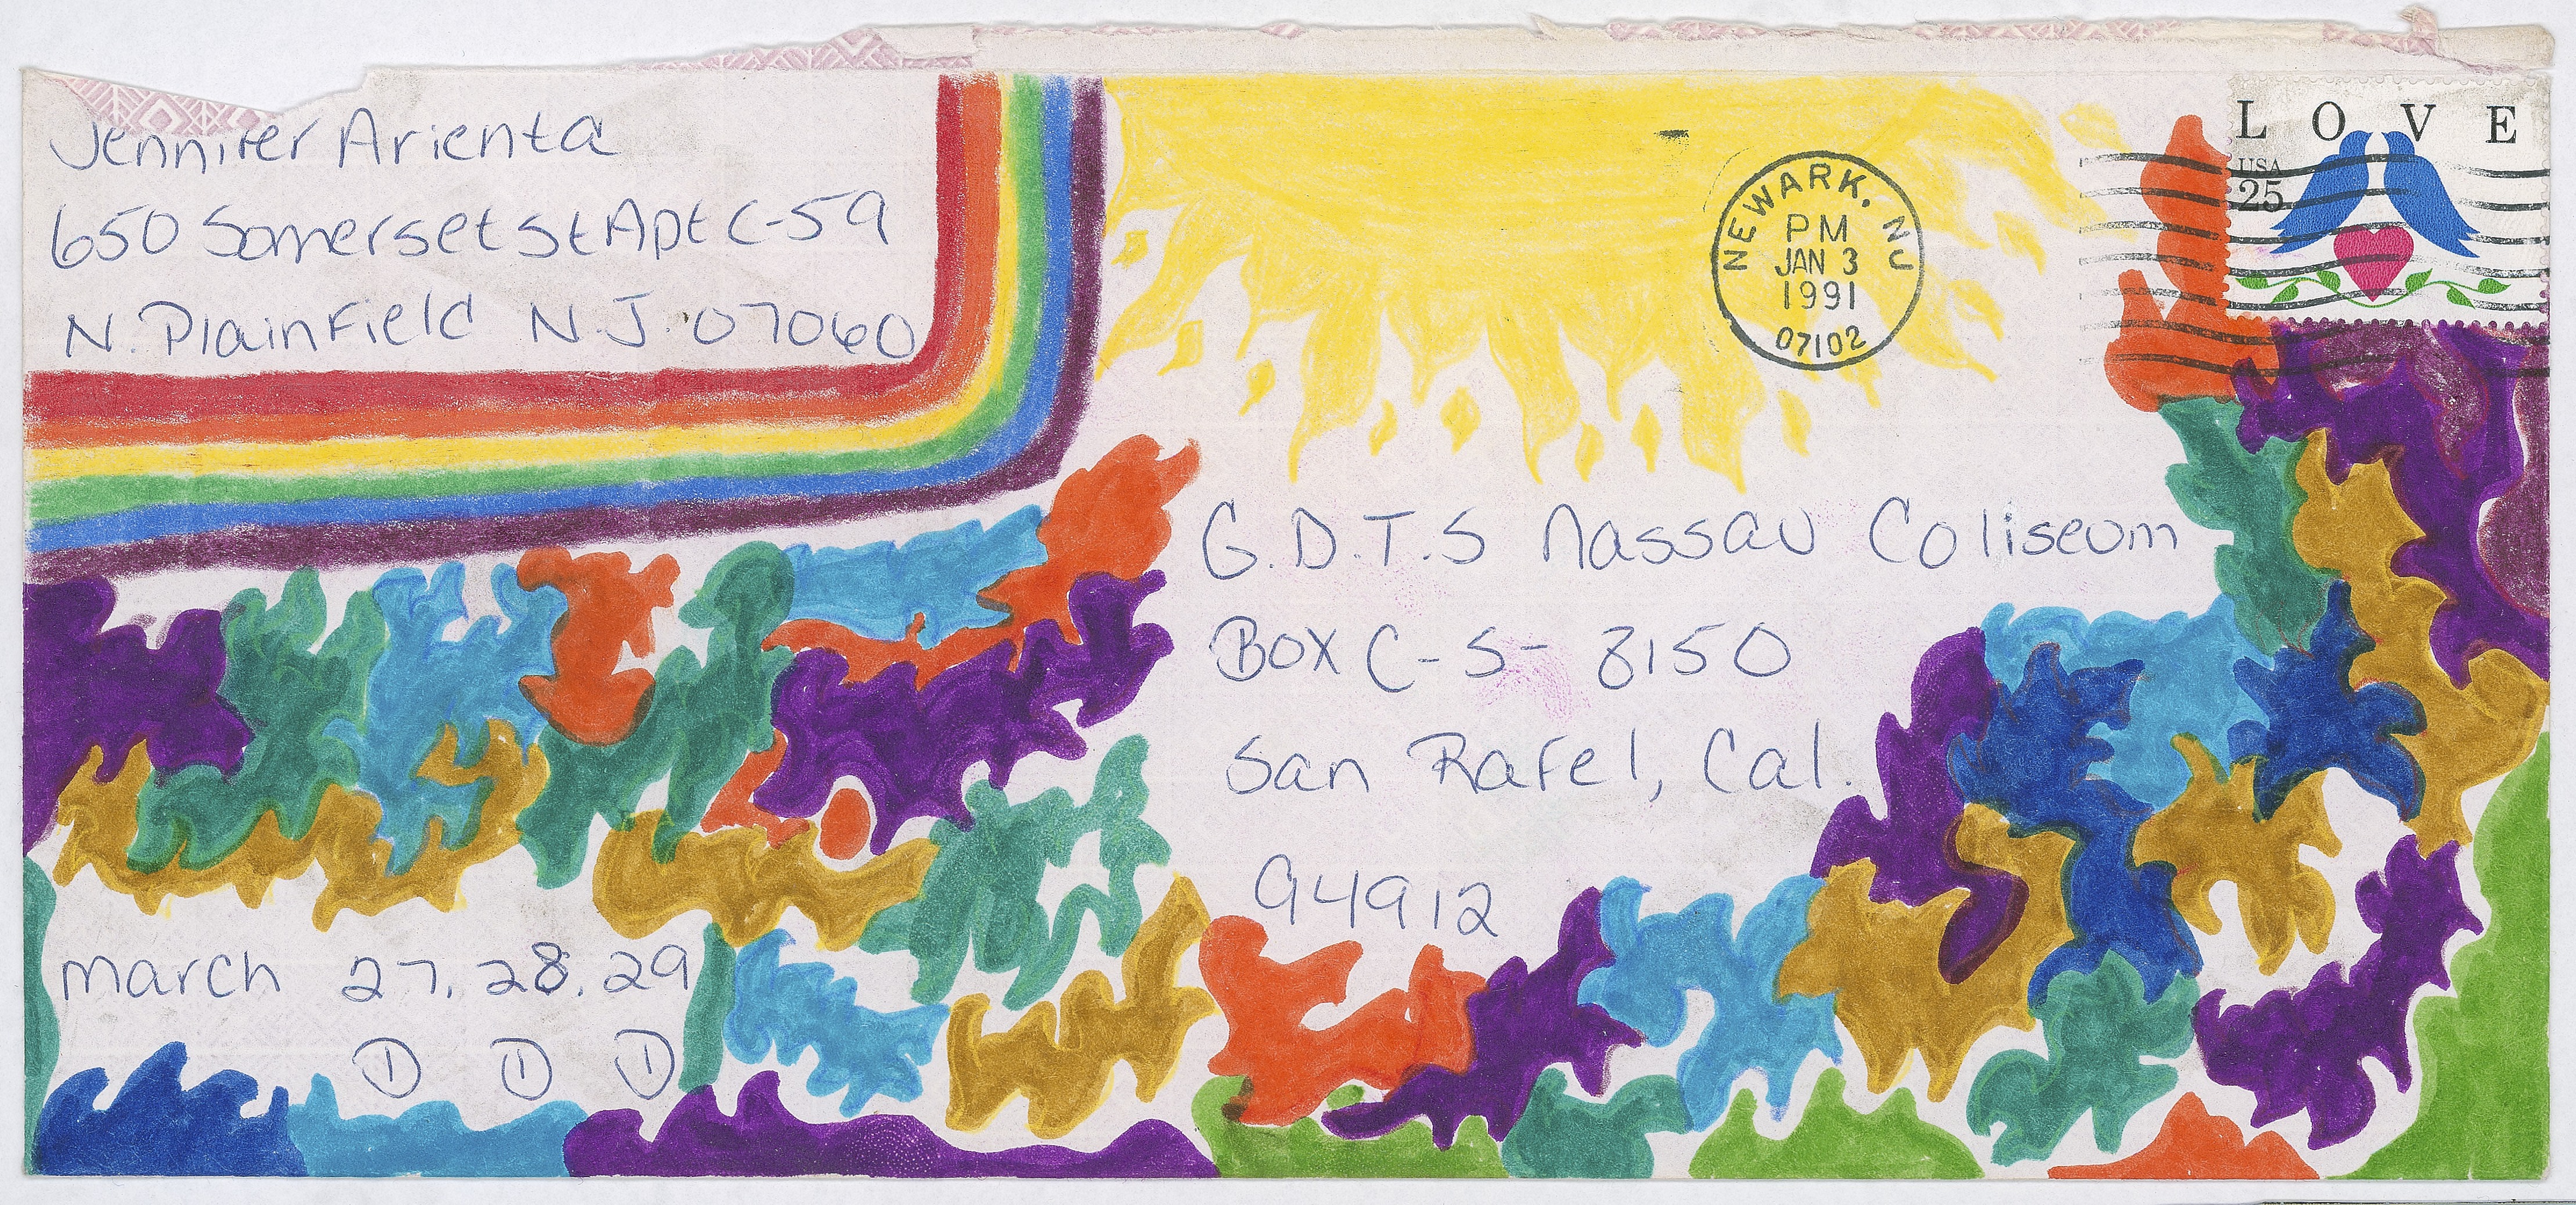 Jennifer Arienta
650 Somerset St Apt C-59
N. Plainfield N.J. 07060
NEWARK, NJ
PM
JAN 3
1991
07102
LOVE
USA
25
G.D.T.S Nassau Coliseum
Box C-S- 8150
San Rafel, Cal.
94912
march 27, 28, 29
1 1 1